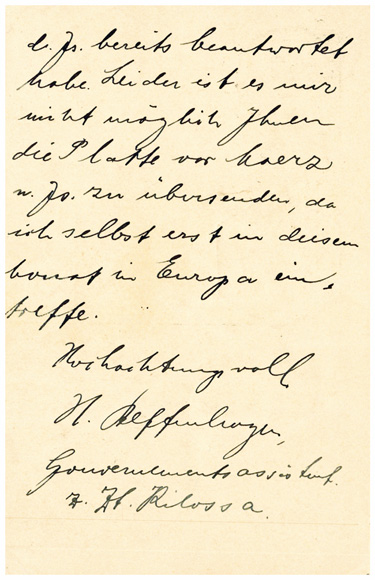 d. Js. bereits beantwortet
habe. Leider ist es mir
nicht möglich Ihnen
die Platte vor Maerz
n. Js. zu übersenden, da
ich selbst erst in diesem
Monat in Europa ein-
treffe.
Hochachtungsvoll
H.
Gouvernementsassistent.
z. Zt. Kilossa.